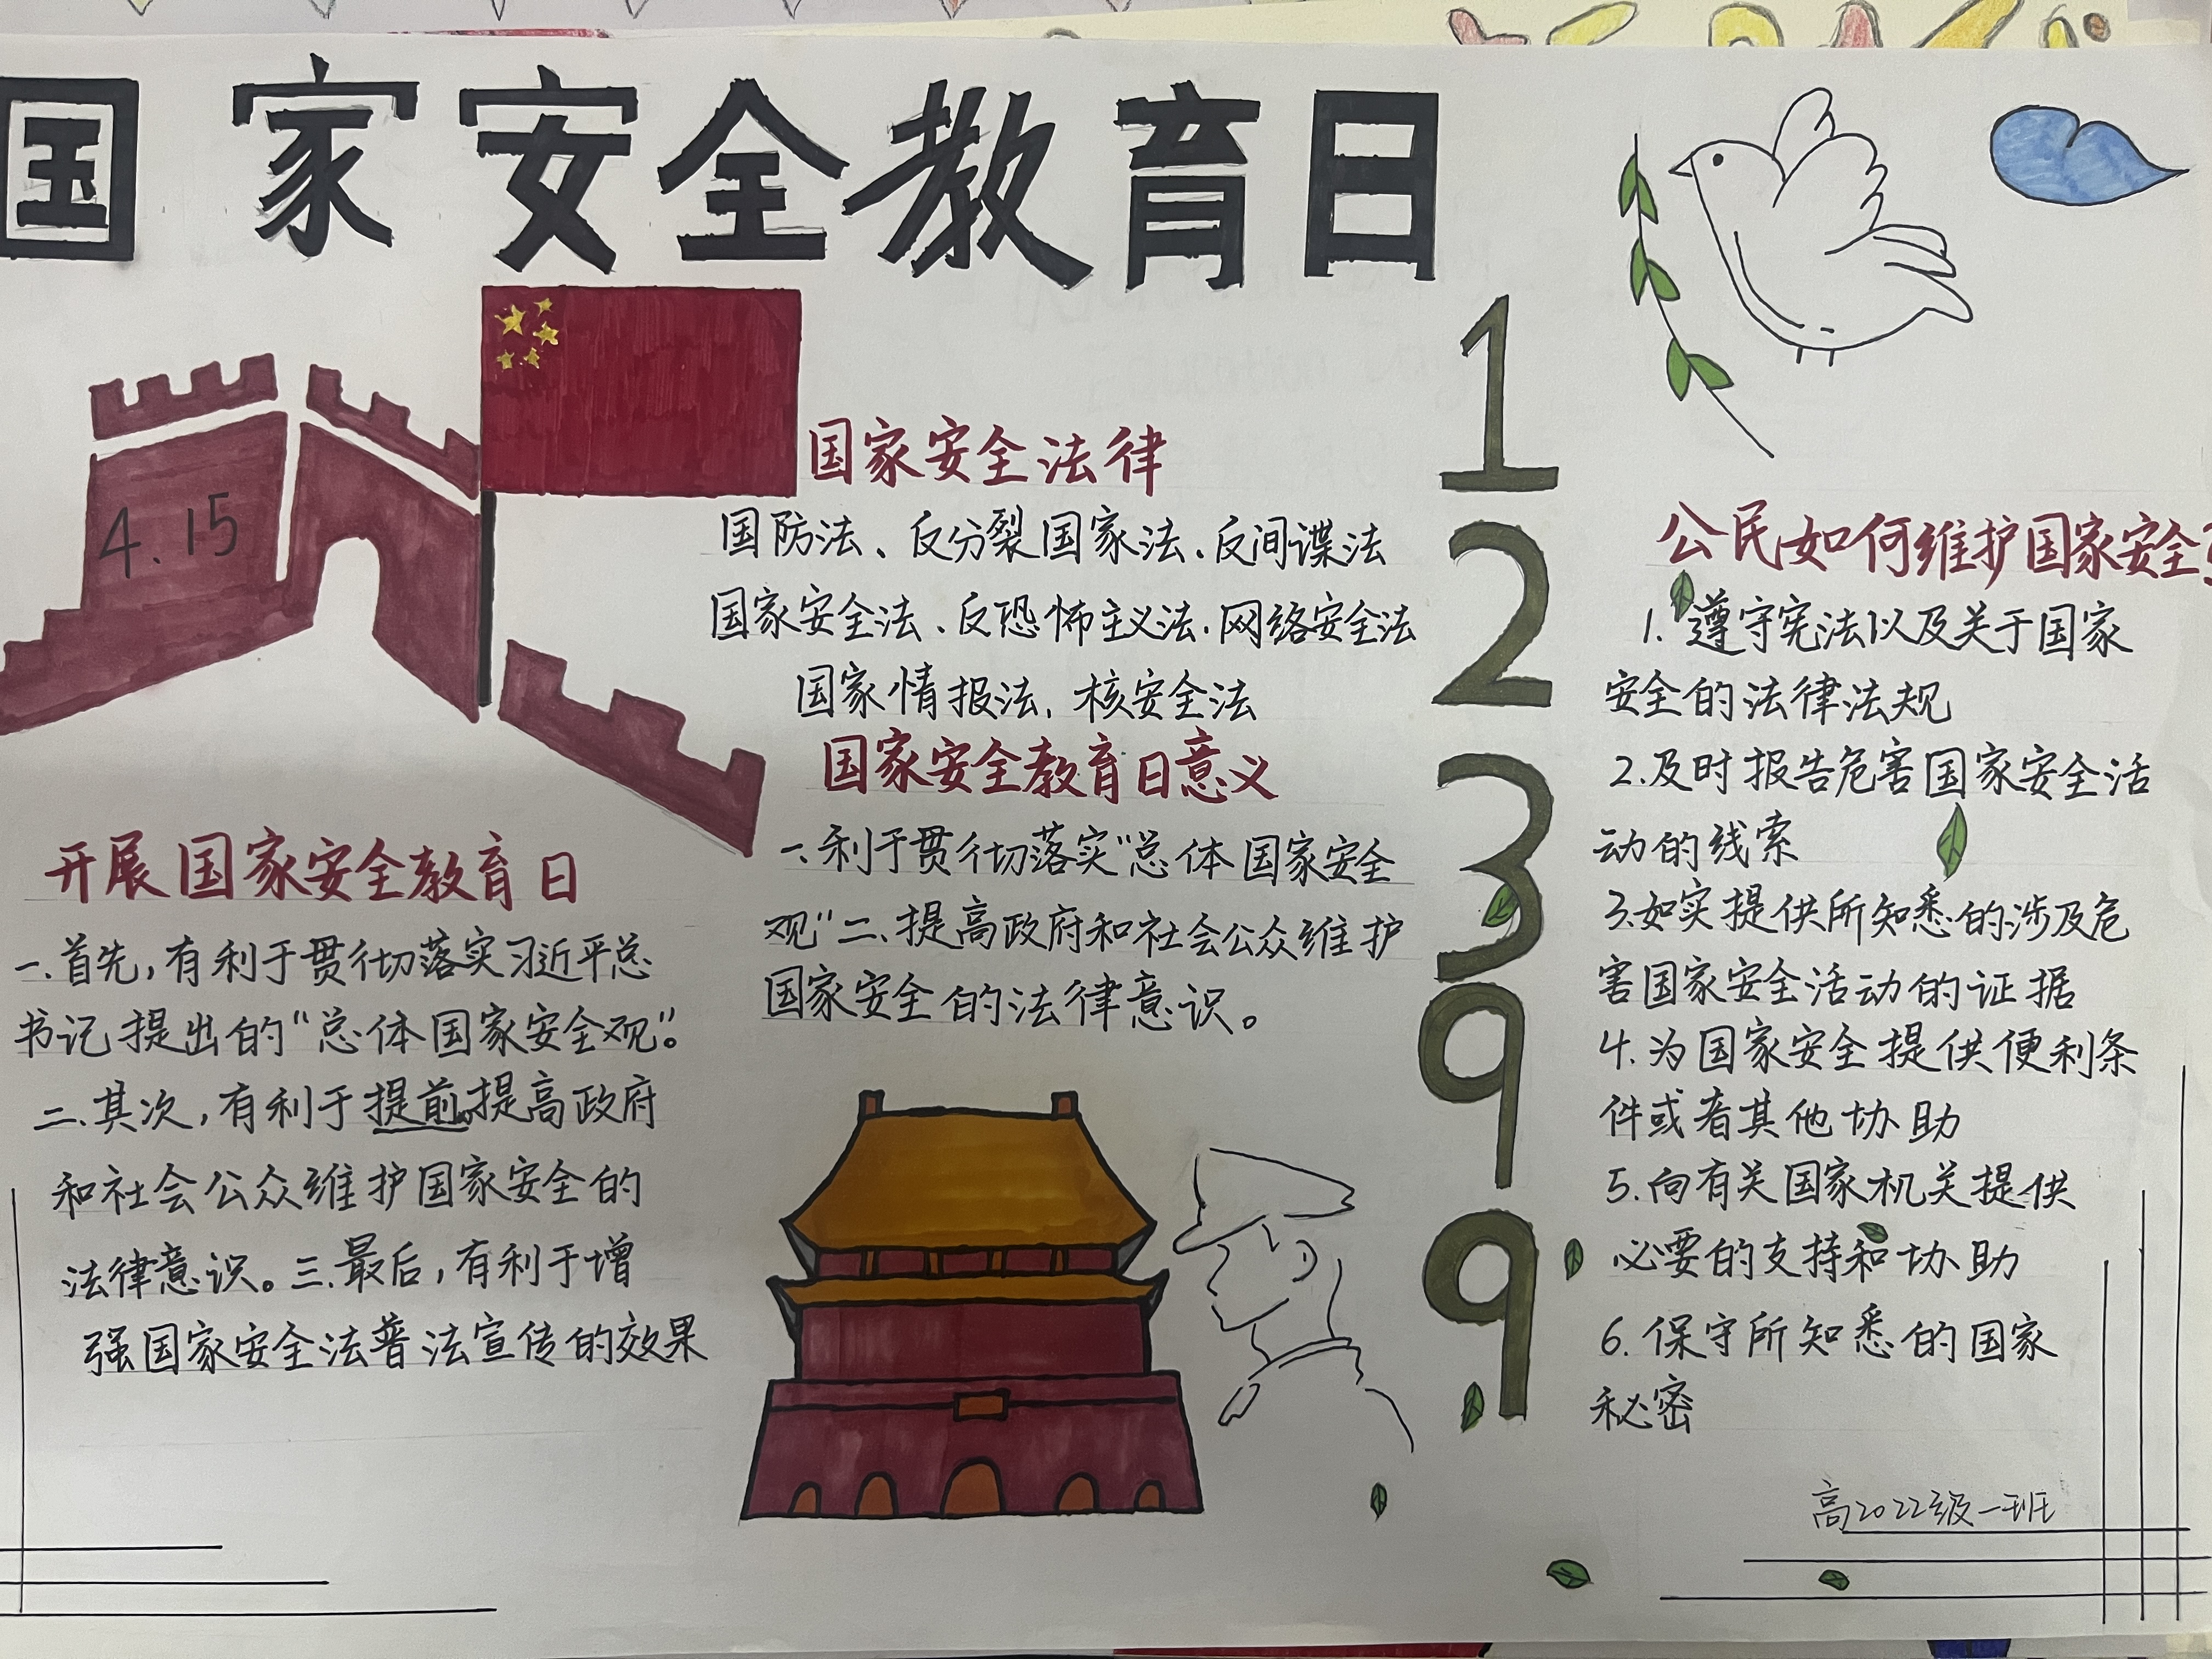 国家安全教育日
4.15
开展国家安全教育日
一.首先,有利于贯彻落实习近平总
书记提出的“总体国家安全观”。
二.其次,有利于提前提高政府
和社会公众维护国家安全的
法律意识。三.最后,有利于增
强国家安全法普法宣传的效果
国家安全法律
国防法、反分裂国家法、反间谍法
国家安全法、反恐怖主义法、网络安全法
国家情报法、核安全法
国家安全教育日意义
一、利于贯彻落实“总体国家安全
观”二、提高政府和社会公众维护
国家安全的法律意识。
1
2
3
9
9
公民如何维护国家安全
1.遵守宪法以及关于国家
安全的法律法规
2.及时报告危害国家安全活
动的线索
3.如实提供所知悉的涉及危
害国家安全活动的证据
4.为国家安全提供便利条
件或者其他协助
5.向有关国家机关提供
必要的支持和协助
6.保守所知悉的国家
秘密
高2022级一班